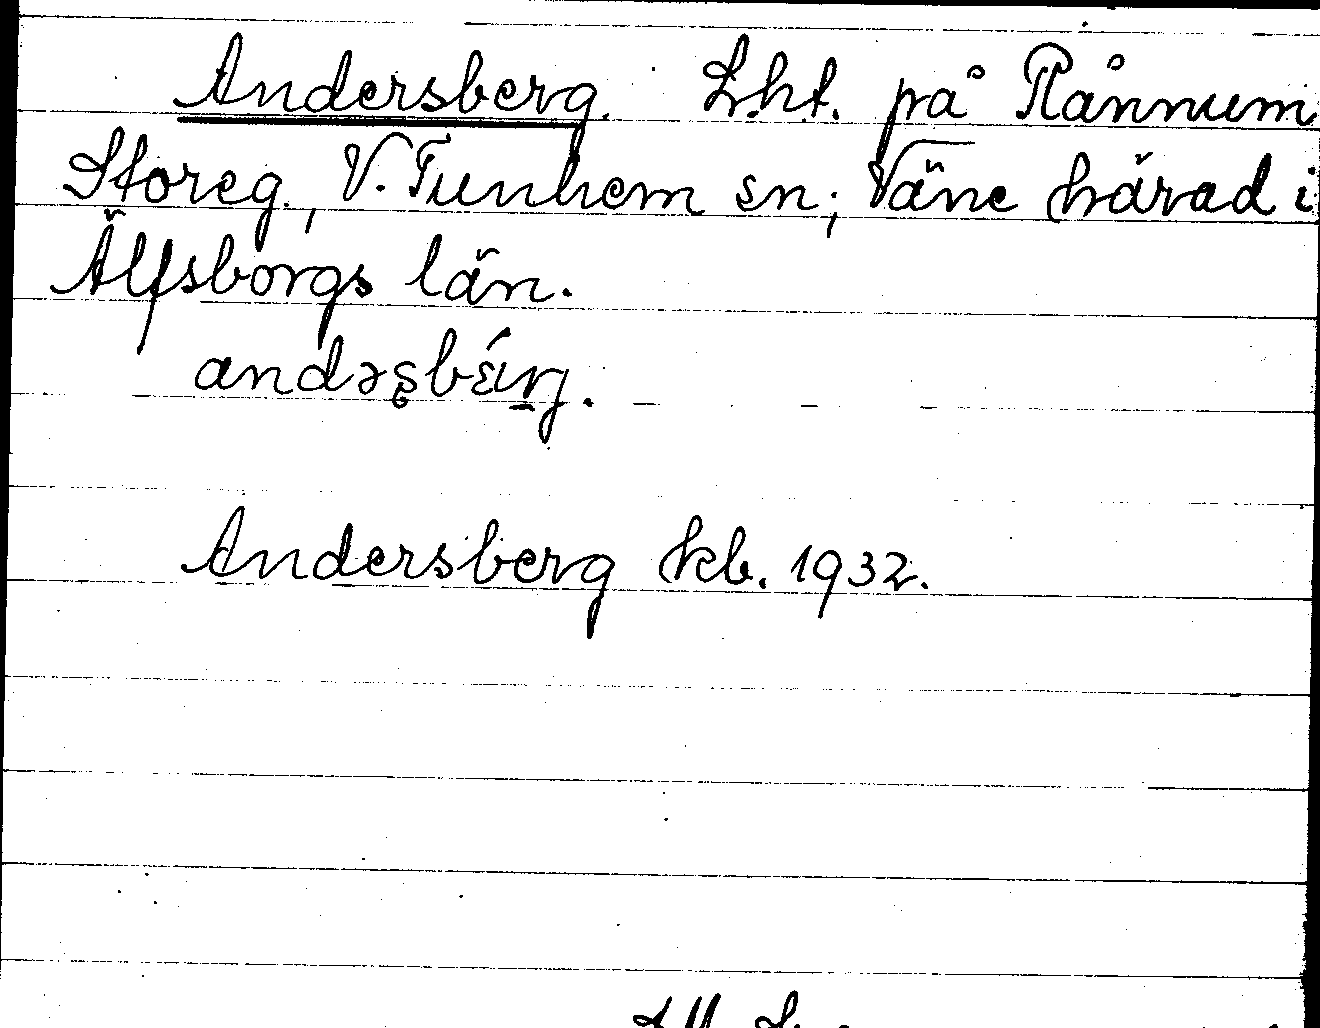 Andersberg. Lht. på Rånnum
Storeg., V. Tunhem sn; Väne härad i
Älfsborgs län.
Andersberg kb. 1932.